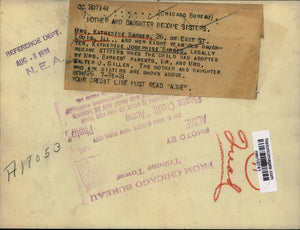 CC 307141
(CHICAGO BUREAU)
MOTHER AND DAUGHTER BECOME SISTERS.
MRS. KATHERINE BARNES, 26, OF EAST ST.
LOUIS, ILL., AND HER EIGHT YEAR OLD DAUGH-
TER, KATHERINE JOSEPHINE BARNES, LEGALLY
BECAME SISTERS WHEN THE CHILD WAS ADOPTED
BY MRS. BARNES' PARENTS, MR. AND MRS.
WALTER J. GILLEN. THE MOTHER AND DAUGHTER
WHO ARE SISTERS ARE SHOWN ABOVE.
7-31-31
YOUR CREDIT LINE MUST READ "ACME".
REFERENCE DEPT.
AUG -8 1931
N. E. A.
Please Credit "Acme Photo"
PHOTO BY
ACME
FROM CHICAGO BUREAU
Tribune Tower
A17053